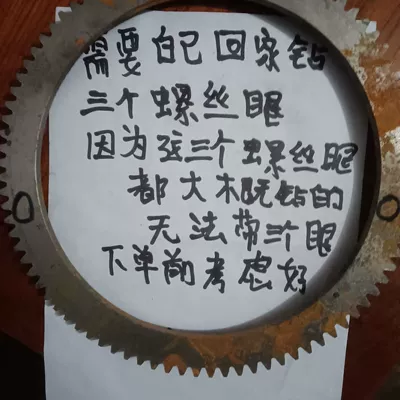 需要自己回家钻
三个螺丝眼
因为这三个螺丝眼
都大概钻的
无法带三个眼
下单前考虑好